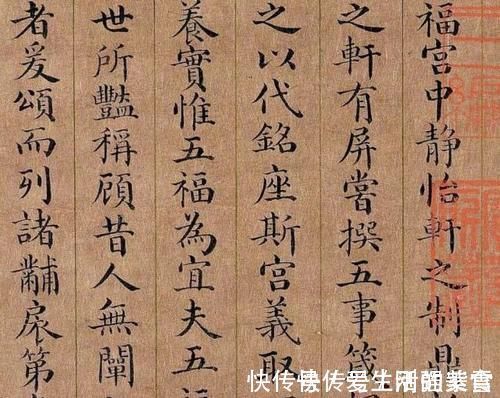 福宮中静怡軒之制鼎
之軒有屏嘗撰五事箴
之以代銘座斯宮義取
養實惟五福為宜夫五福
世所豔稱顧昔人無闡
者爰頌而列諸黼扆第
快传号